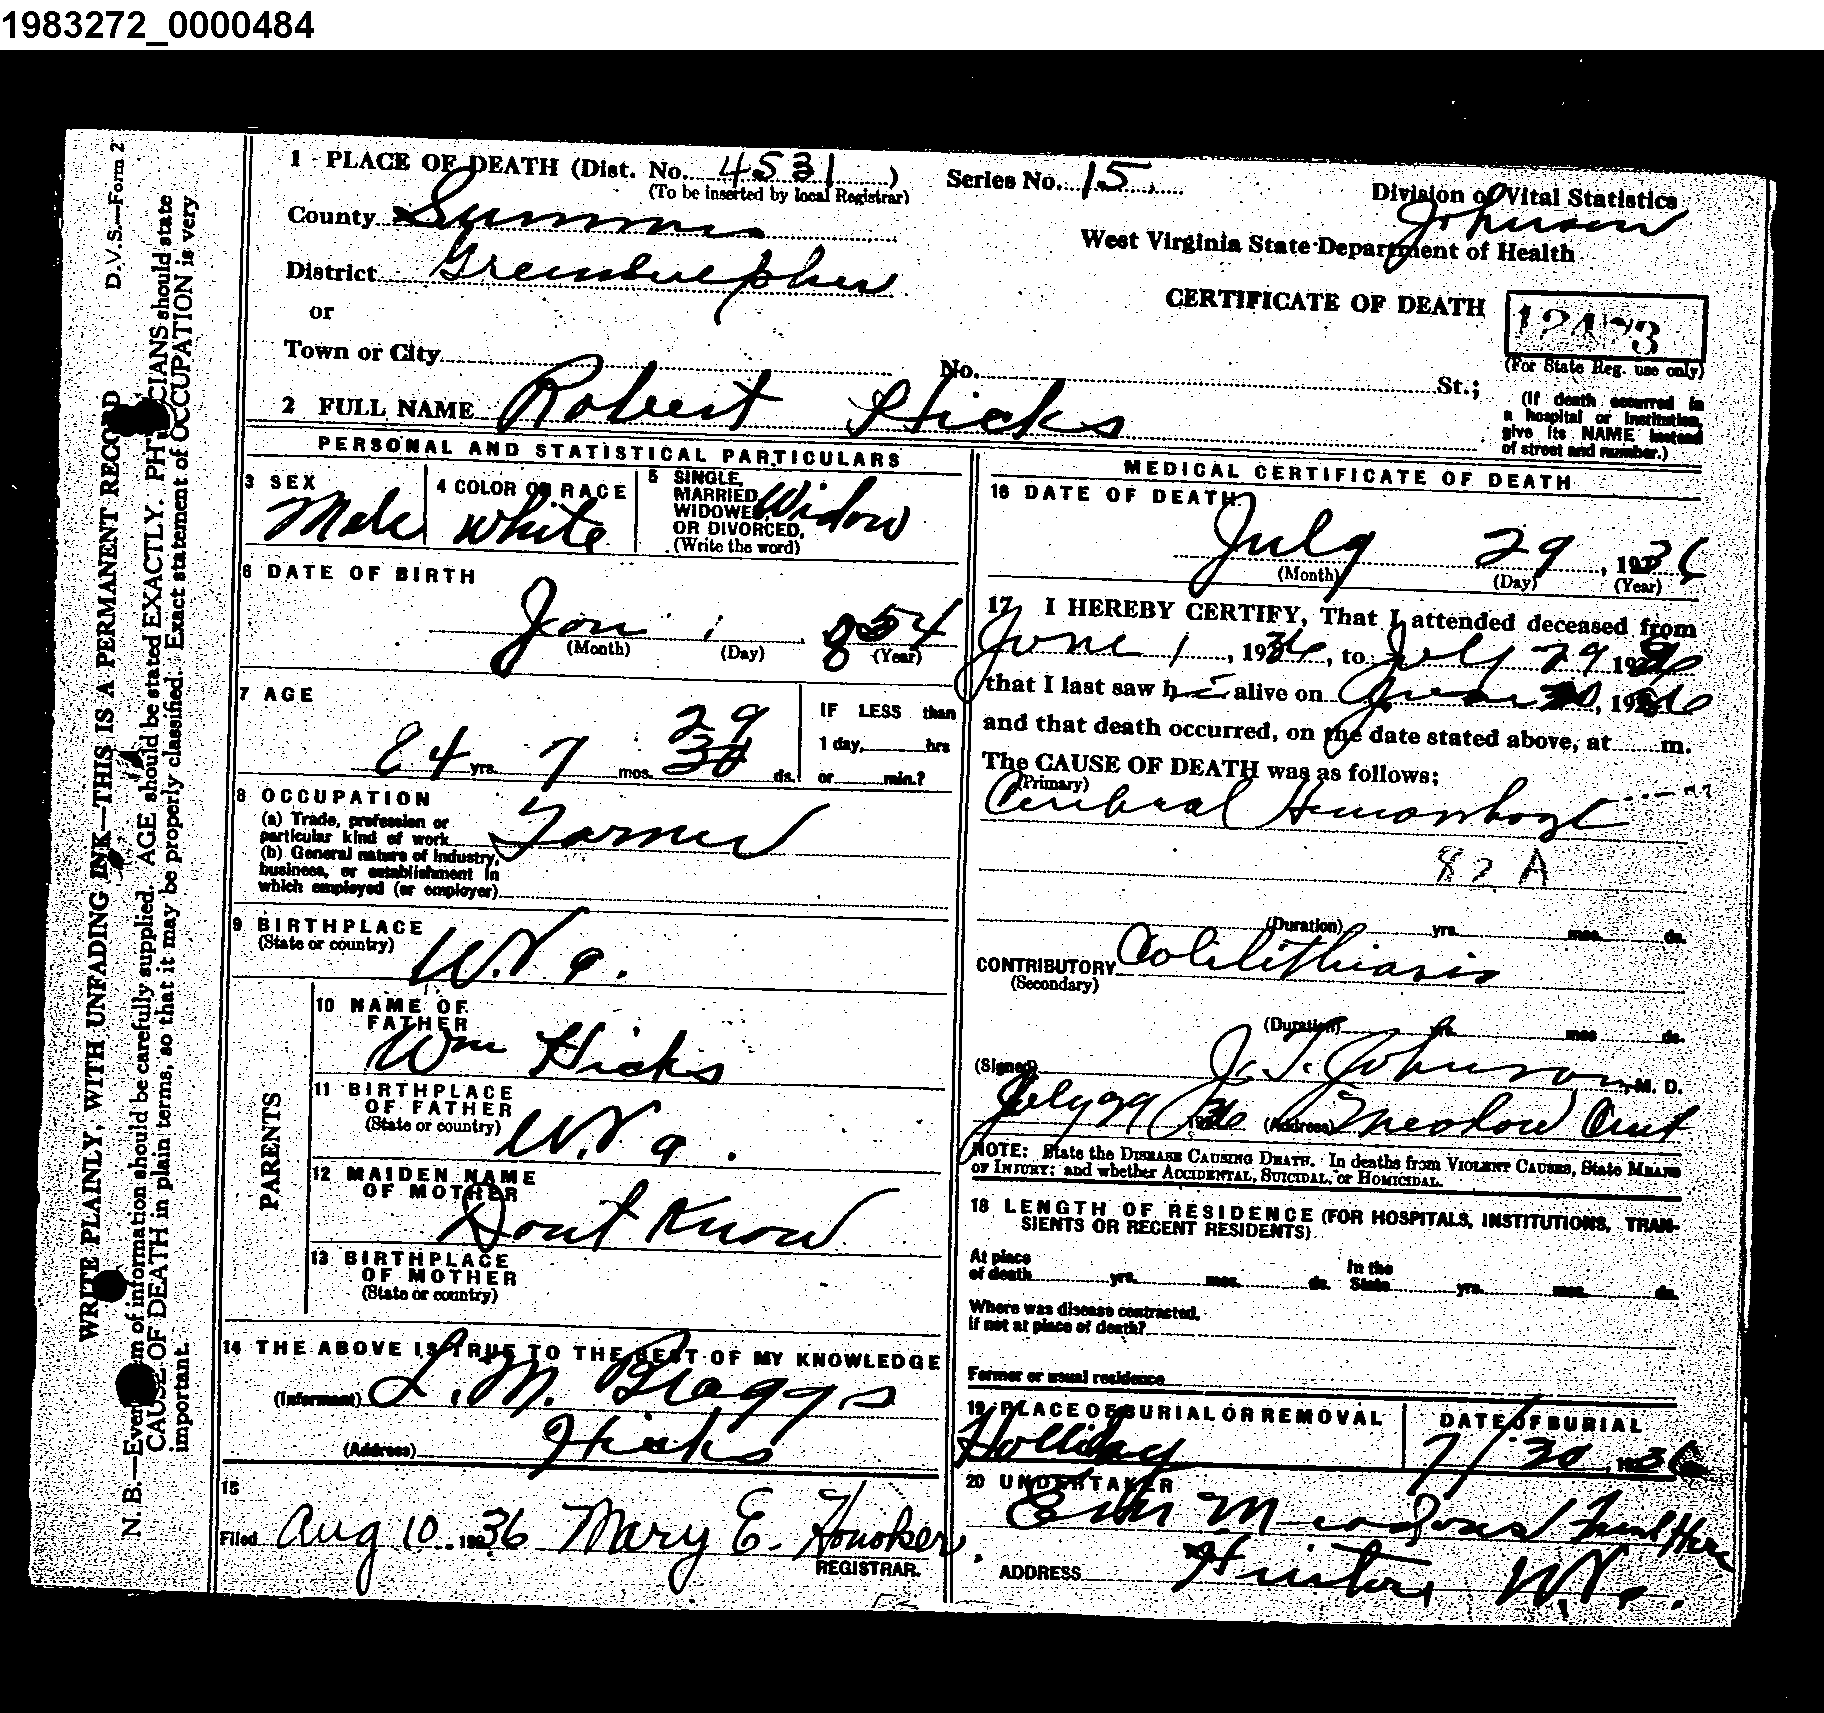 1983272_0000484
D.V.S.—Form 2
WRITE PLAINLY, WITH UNFADING INK—THIS IS A PERMANENT RECORD
N. B.—Every item of information should be carefully supplied. AGE should be stated EXACTLY. PHYSICIANS should state
CAUSE OF DEATH in plain terms, so that it may be properly classified. Exact statement of OCCUPATION is very
important.
1 PLACE OF DEATH (Dist. No. 4531)
(To be inserted by local Registrar)
Series No. 15
Division of Vital Statistics
Johnson
County Summers
West Virginia State Department of Health
District
CERTIFICATE OF DEATH
or
(For State Reg. use only)
Town or City
No. St.;
2 FULL NAME Robert Hicks
(If death occurred in
a hospital or institution,
give its NAME instead
of street and number.)
PERSONAL AND STATISTICAL PARTICULARS
3 SEX
Male
4 COLOR OR RACE
White
5 SINGLE,
MARRIED
WIDOWED
OR DIVORCED,
(Write the word)
Widow
6 DATE OF BIRTH
Jan 1 854
(Month) (Day) (Year)
7 AGE
29
84 yrs. 7 mos. 30 ds.
IF LESS than
1 day, hrs
or min.?
8 OCCUPATION
(a) Trade, profession or
particular kind of work Farmer
(b) General nature of industry,
business, or establishment in
which employed (or employer)
9 BIRTHPLACE
(State or country)
W.Va.
PARENTS
10 NAME OF
FATHER
Wm Hicks
11 BIRTHPLACE
OF FATHER
(State or country)
W.Va.
12 MAIDEN NAME
OF MOTHER
Dont Know
13 BIRTHPLACE
OF MOTHER
(State or country)
14 THE ABOVE IS TRUE TO THE BEST OF MY KNOWLEDGE
(Informant) L. M. Braggs
(Address) Hicks
15
Filed Aug 10, 1936 Mary E. Honaker
REGISTRAR.
MEDICAL CERTIFICATE OF DEATH
16 DATE OF DEATH
July 29, 1936
(Month) (Day) (Year)
17 I HEREBY CERTIFY, That I attended deceased from
June 1, 1936, to July 29 1936
that I last saw h alive on June 30, 1936
and that death occurred, on the date stated above, at m.
The CAUSE OF DEATH was as follows:
(Primary)
Cerebral Hemorrhage
82 A
(Duration) yrs. mos. ds.
CONTRIBUTORY Colelithiasis
(Secondary)
(Duration) yrs. mos ds.
(Signed) J. T. Johnson, M. D.
July 29 1936 (Address)
NOTE: State the DISEASE CAUSING DEATH. In deaths from VIOLENT CAUSES, State MEANS
OF INJURY; and whether ACCIDENTAL, SUICIDAL, or HOMICIDAL.
18 LENGTH OF RESIDENCE (FOR HOSPITALS, INSTITUTIONS, TRAN-
SIENTS OR RECENT RESIDENTS)
At place
of death yrs. mos. ds.
In the
State yrs. mos. ds.
Where was disease contracted,
if not at place of death?
Former or usual residence
19 PLACE OF BURIAL OR REMOVAL
Holliday
DATE OF BURIAL
7/30, 1936
20 UNDERTAKER
Meadows
ADDRESS Hinton W.Va.